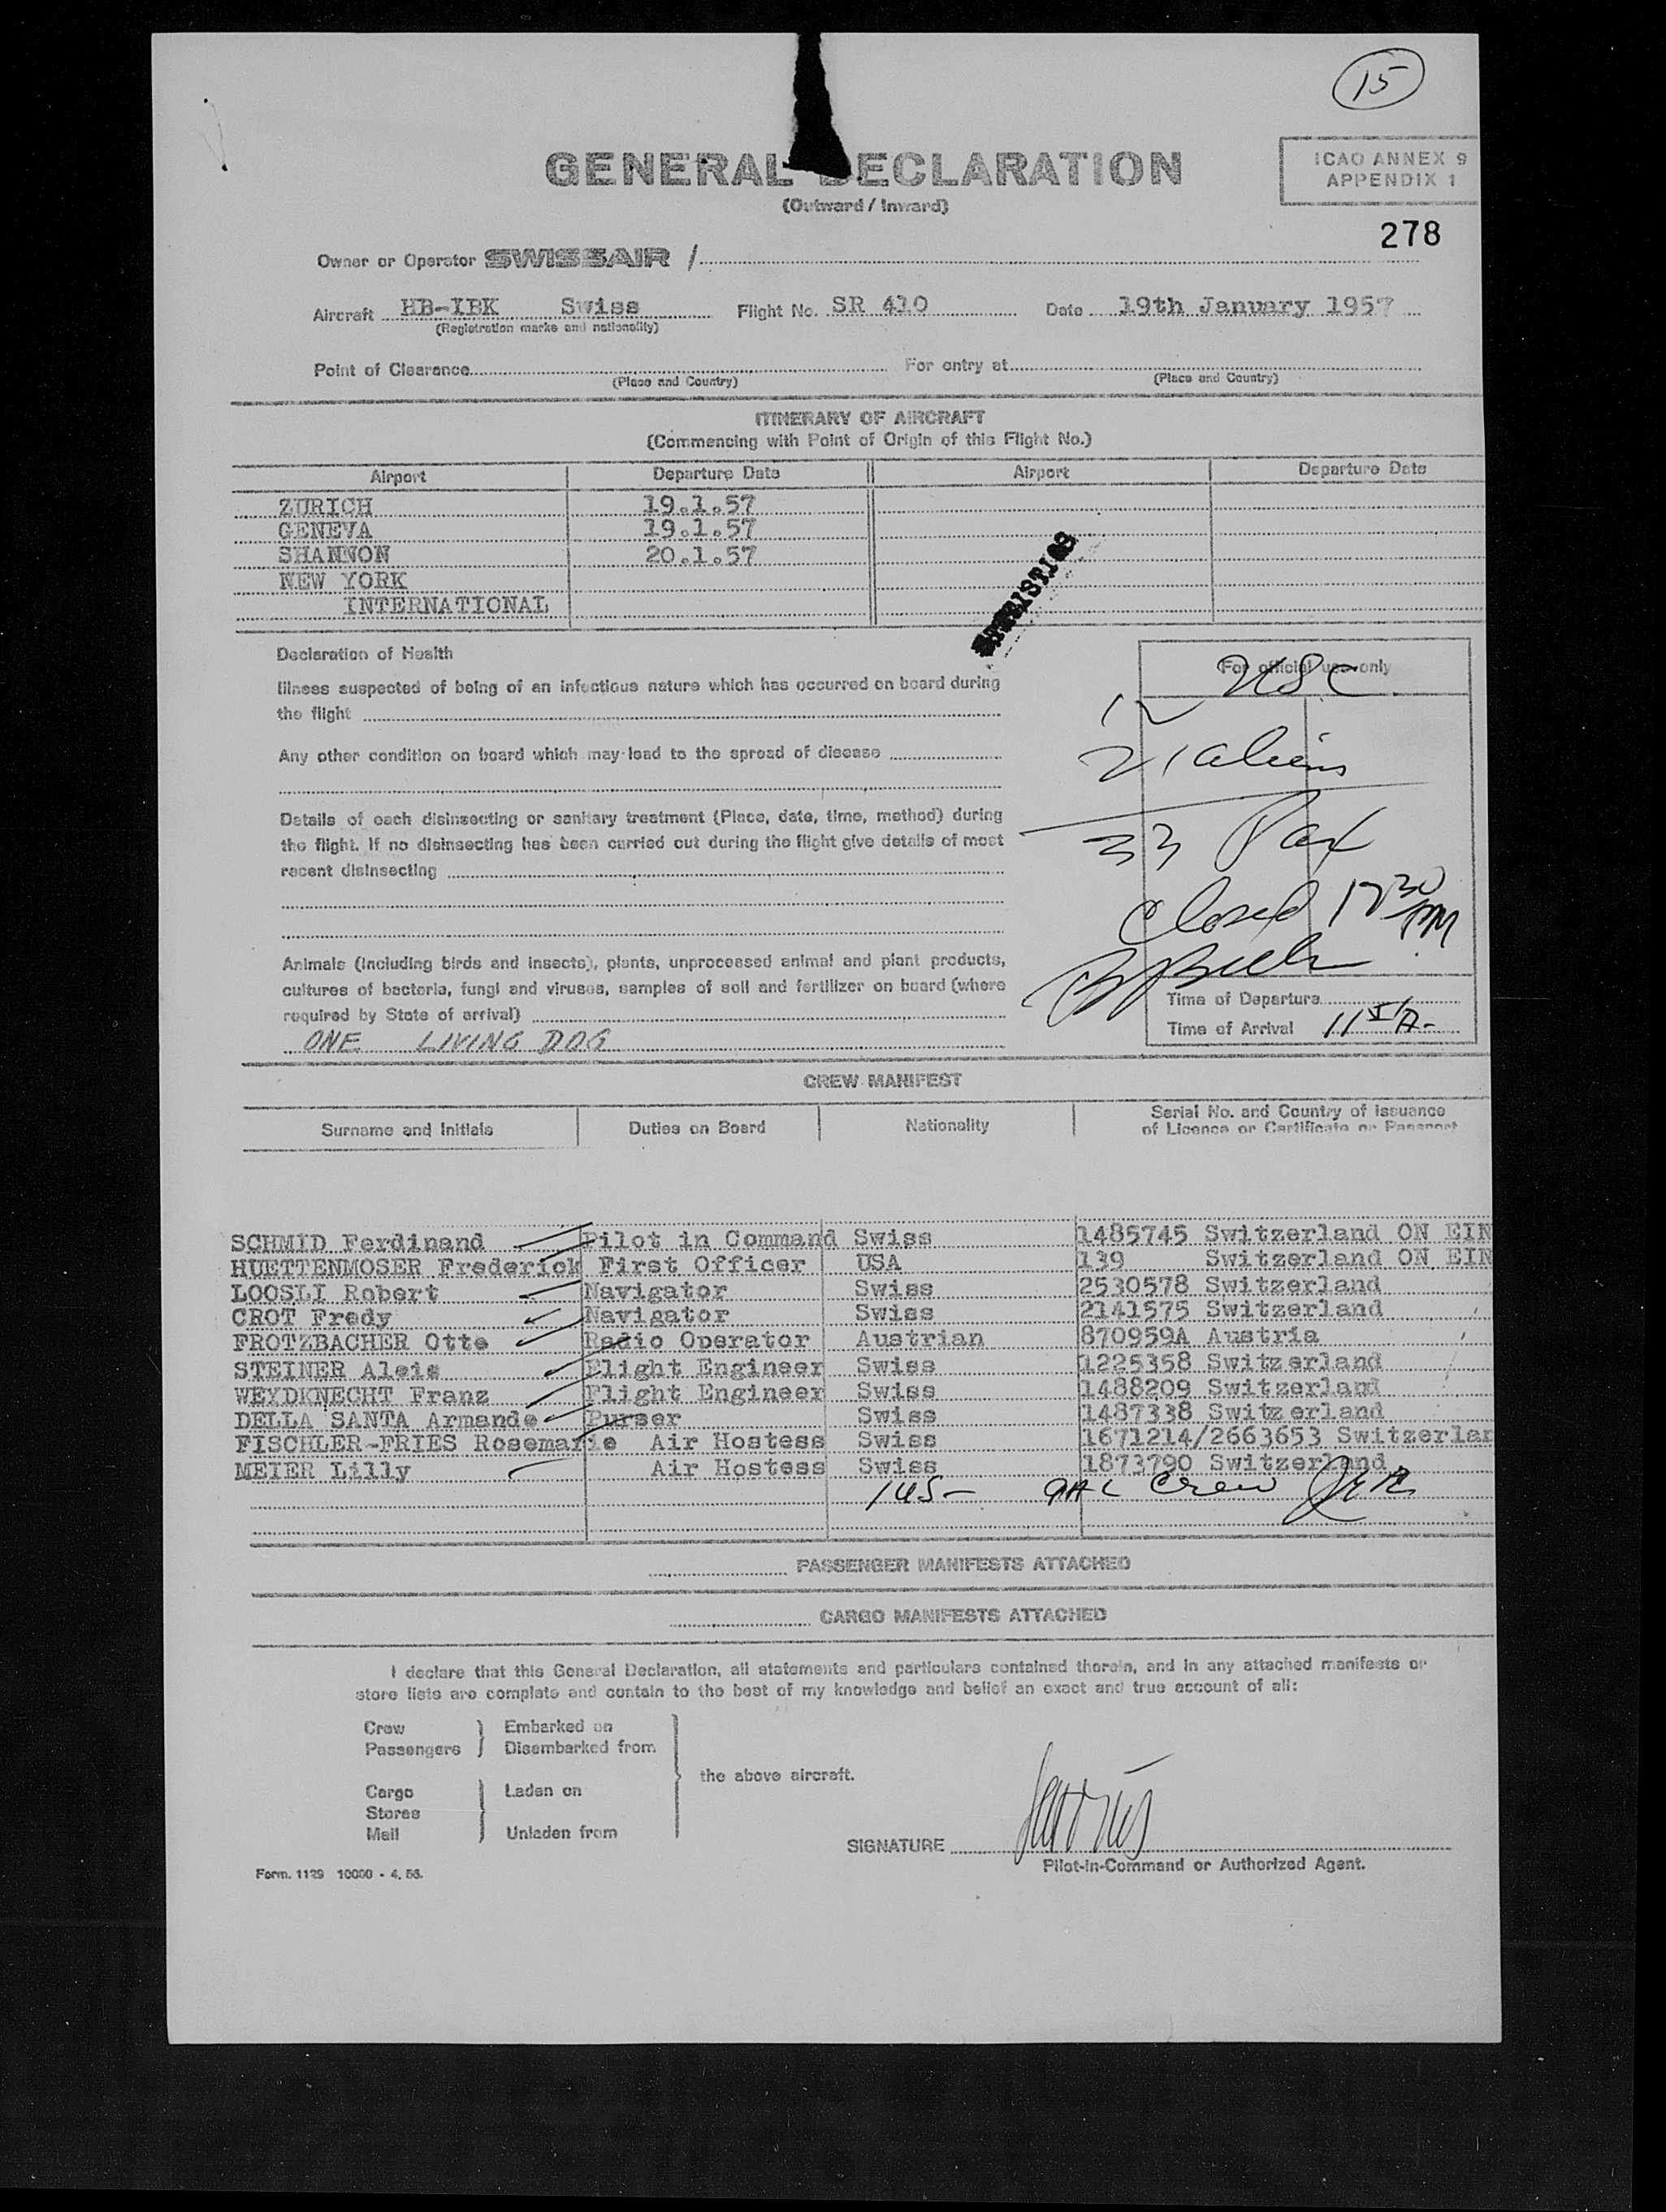 15
GENERAL DECLARATION
(Outward / Inward)
ICAO ANNEX 9
APPENDIX 1
278
Owner or Operator SWISSAIR /
Aircraft HB-IBK Swiss Flight No. SR 410 Date 19th January 1957
(Registration marks and nationality)
Point of Clearance For entry at
(Place and Country) (Place and Country)
ITINERARY OF AIRCRAFT
(Commencing with Point of Origin of this Flight No.)
Airport Departure Date Airport Departure Date
ZURICH 19.1.57
GENEVA 19.1.57
SHANNON 20.1.57
NEW YORK
INTERNATIONAL
Declaration of Health
Illness suspected of being of an infectious nature which has occurred on board during
the flight
Any other condition on board which may lead to the spread of disease
Details of each disinsecting or sanitary treatment (Place, date, time, method) during
the flight. If no disinsecting has been carried out during the flight give details of most
recent disinsecting
Animals (including birds and insects), plants, unprocessed animal and plant products,
cultures of bacteria, fungi and viruses, samples of soil and fertilizer on board (where
required by State of arrival)
ONE LIVING DOG
For official use only
12 USC
21 aliens
33 Pax
Closed 12 30 PM
Time of Departure
Time of Arrival 11
CREW MANIFEST
Surname and Initials Duties on Board Nationality Serial No. and Country of Issuance
of Licence or Certificate or Passport
SCHMID Ferdinand Pilot in Command Swiss 1485745 Switzerland ON EIN
HUETTENMOSER Frederick First Officer USA 139 Switzerland ON EIN
LOOSLI Robert Navigator Swiss 2530578 Switzerland
CROT Fredy Navigator Swiss 2141575 Switzerland
FROTZBACHER Otto Radio Operator Austrian 870959A Austria
STEINER Alois Flight Engineer Swiss 1225358 Switzerland
WEYDKNECHT Franz Flight Engineer Swiss 1488209 Switzerland
DELLA SANTA Armando Purser Swiss 1487338 Switzerland
FISCHLER-FRIES Rosemarie Air Hostess Swiss 1671214/2663653 Switzerlan
MEIER Lilly Air Hostess Swiss 1873790 Switzerland
1US- 9AL Crew
PASSENGER MANIFESTS ATTACHED
CARGO MANIFESTS ATTACHED
I declare that this General Declaration, all statements and particulars contained therein, and in any attached manifests or
store lists are complete and contain to the best of my knowledge and belief an exact and true account of all:
Crew Embarked on
Passengers Disembarked from
the above aircraft.
Cargo Laden on
Stores
Mail Unladen from
SIGNATURE
Pilot-in-Command or Authorized Agent.
Form. 1129 10000 - 4. 56.